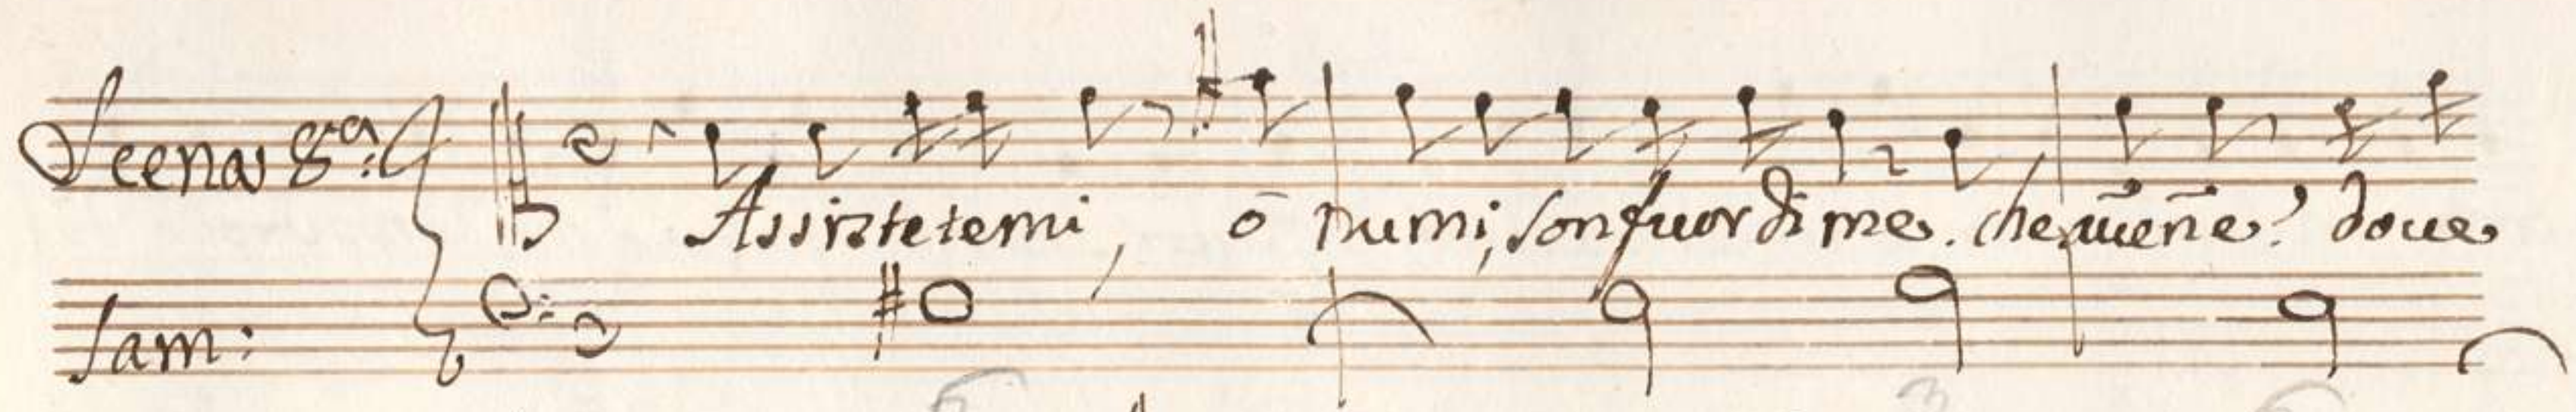 Scena 8a:
Assistetemi, ō numi, son fuor di me. che uiene? doue
Sam: